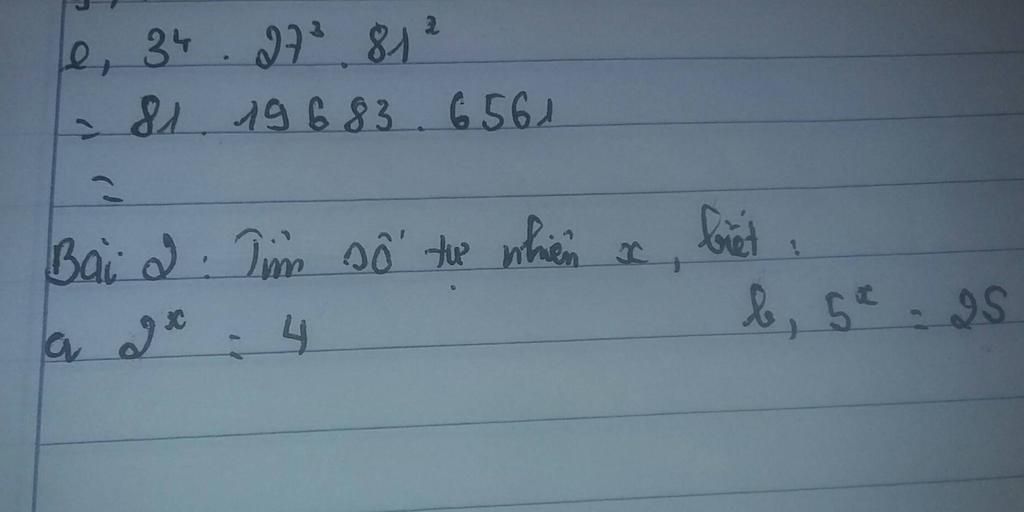 e, 3⁴ . 27³ . 81²
= 81 . 19683 . 6561
=
Bài 2 : Tìm số tự nhiên x, biết :
a 2ˣ = 4 b, 5ˣ = 25